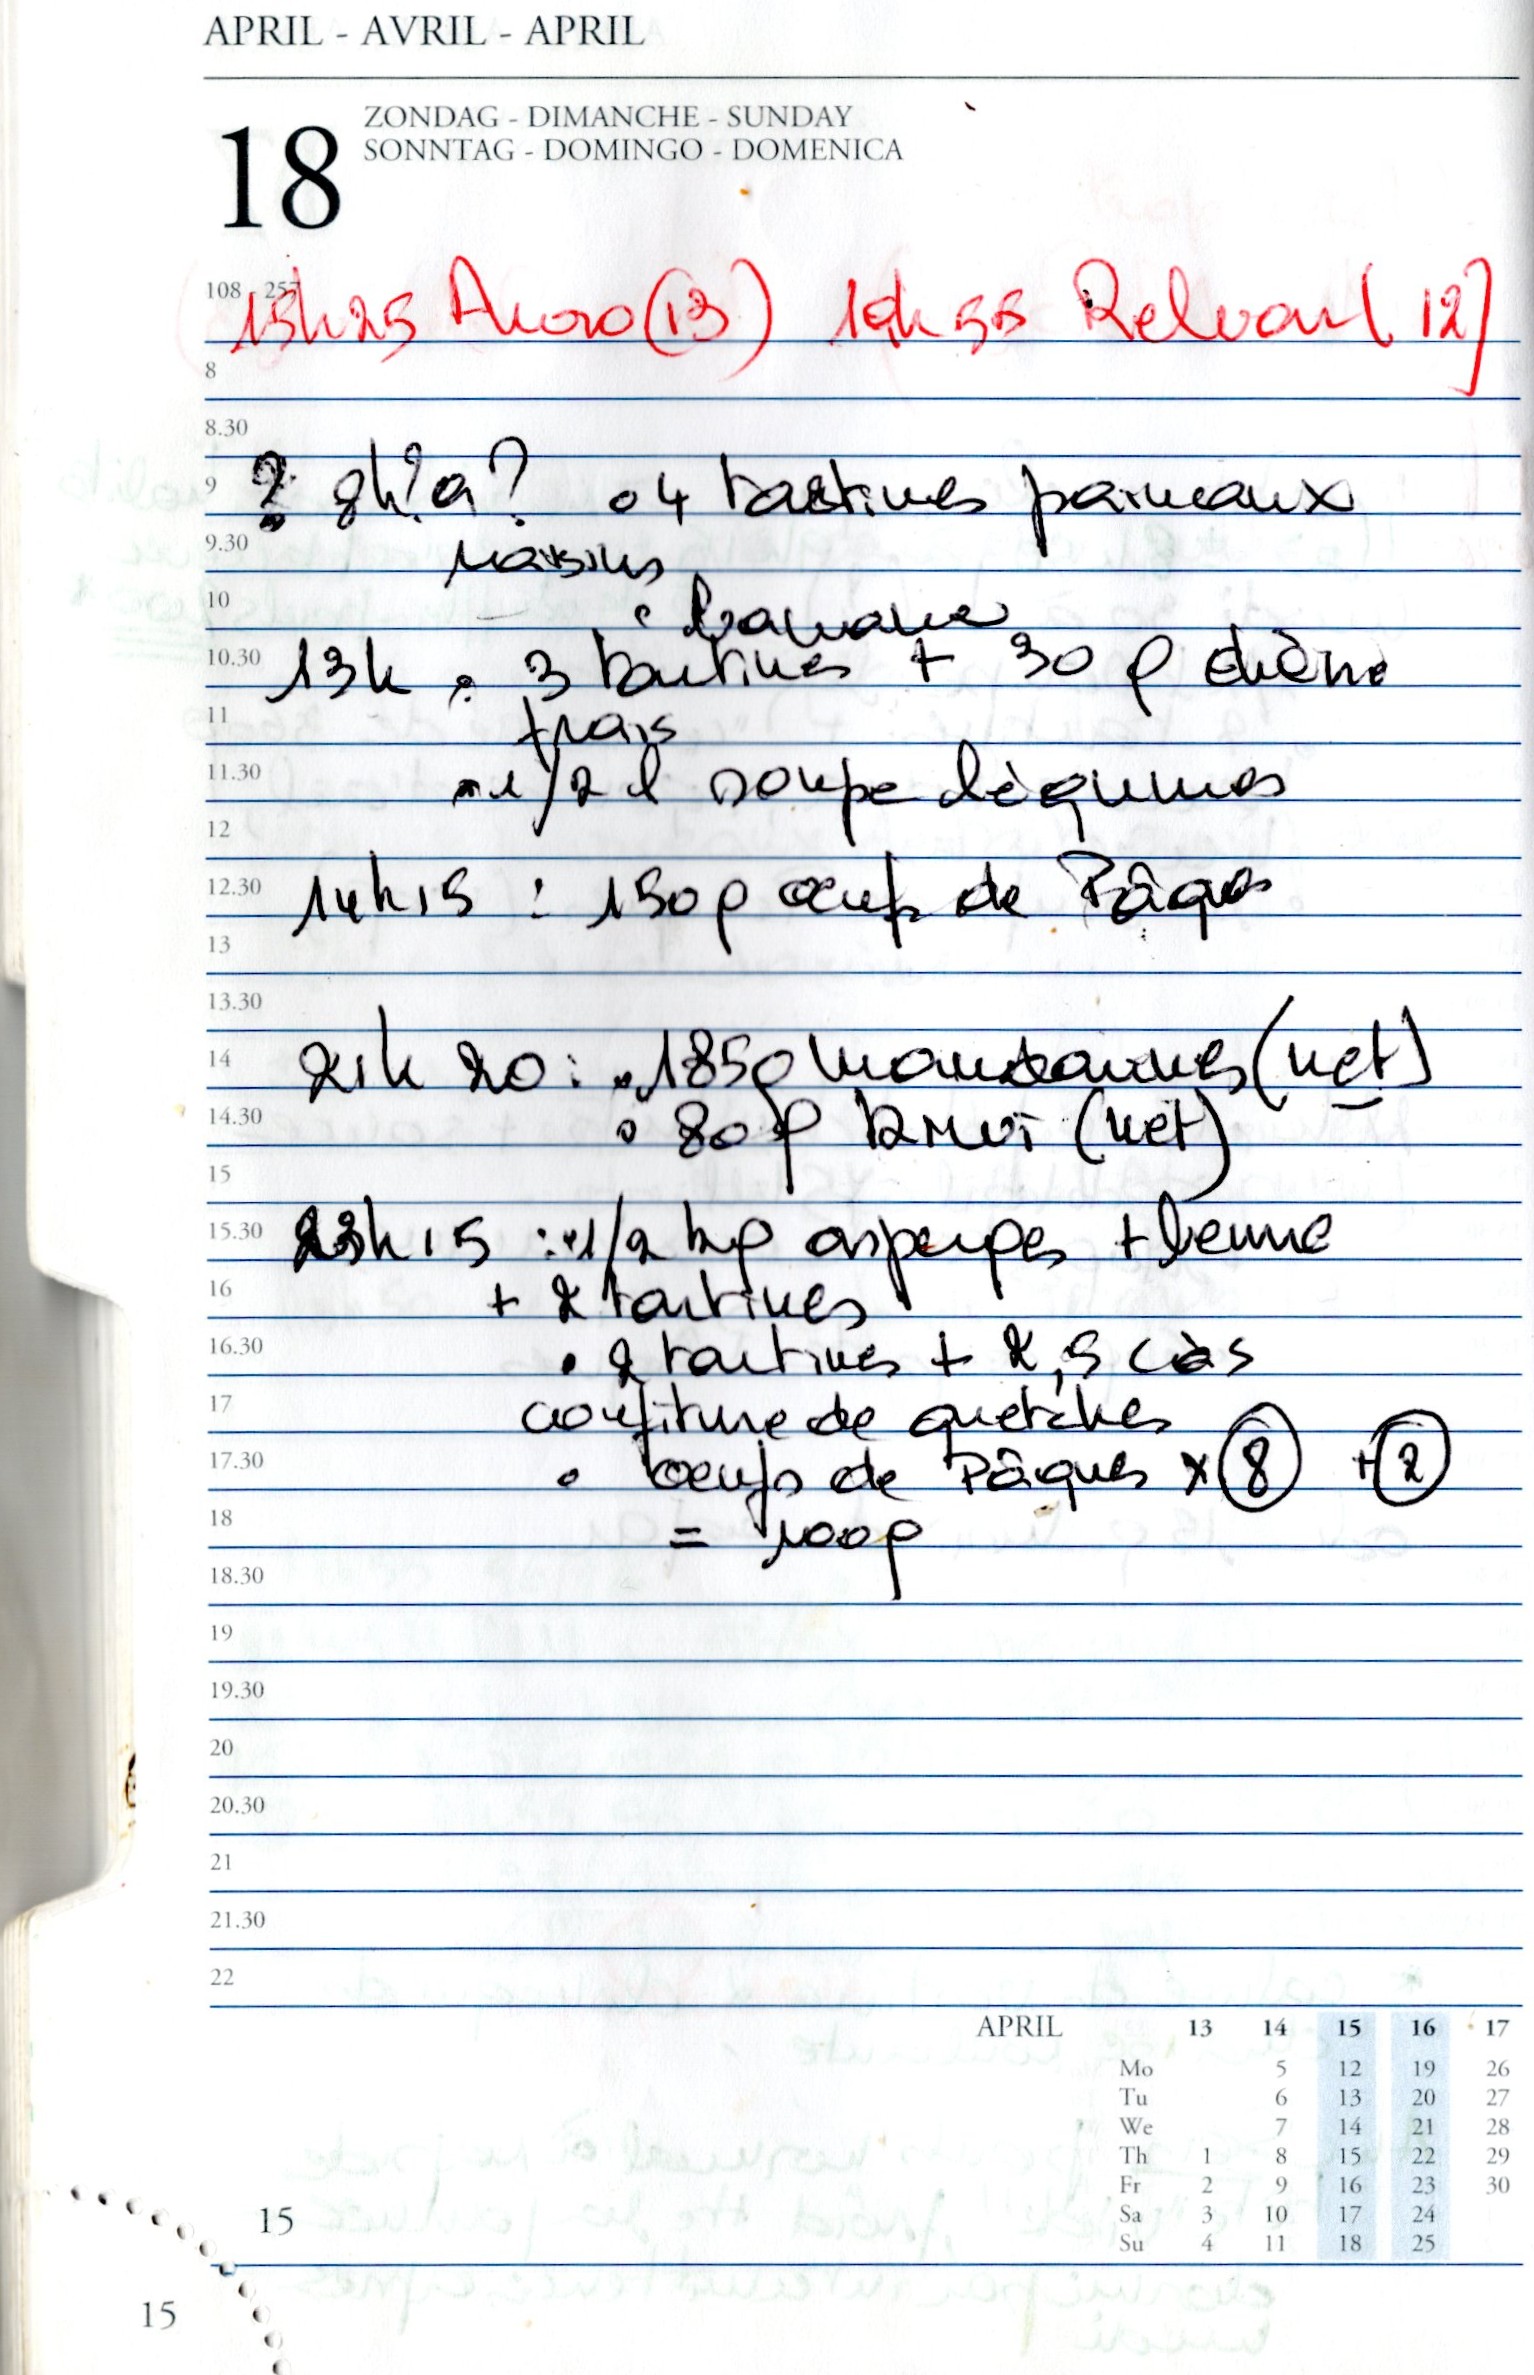 APRIL - AVRIL - APRIL
18
ZONDAG - DIMANCHE - SUNDAY
SONNTAG - DOMINGO - DOMENICA
108 257
15h25 (13) 19h55 [12]
8
8.30
9 ? 9h? a? • 4 tartines pain aux
9.30 raisins
10 • banane
10.30 13h • 3 tartines + 30 g chèvre
11 frais
11.30 • 1/2 l soupe légumes
12
12.30 14h15 : 150g œufs de Pâques
13
13.30
14 21h20 : • 185g (net)
14.30 • 80g kiwi (net)
15
15.30 23h15 : • 1/2 kg asperges + beurre
16 + 2 tartines
16.30 • 2 tartines + 2,5 càs
17 confiture de quetches
17.30 • œufs de Pâques x 8 + 2
18 = 100g
18.30
19
19.30
20
20.30
21
21.30
22
APRIL 13 14 15 16 17
Mo 5 12 19 26
Tu 6 13 20 27
We 7 14 21 28
Th 1 8 15 22 29
Fr 2 9 16 23 30
Sa 3 10 17 24
Su 4 11 18 25
15
15